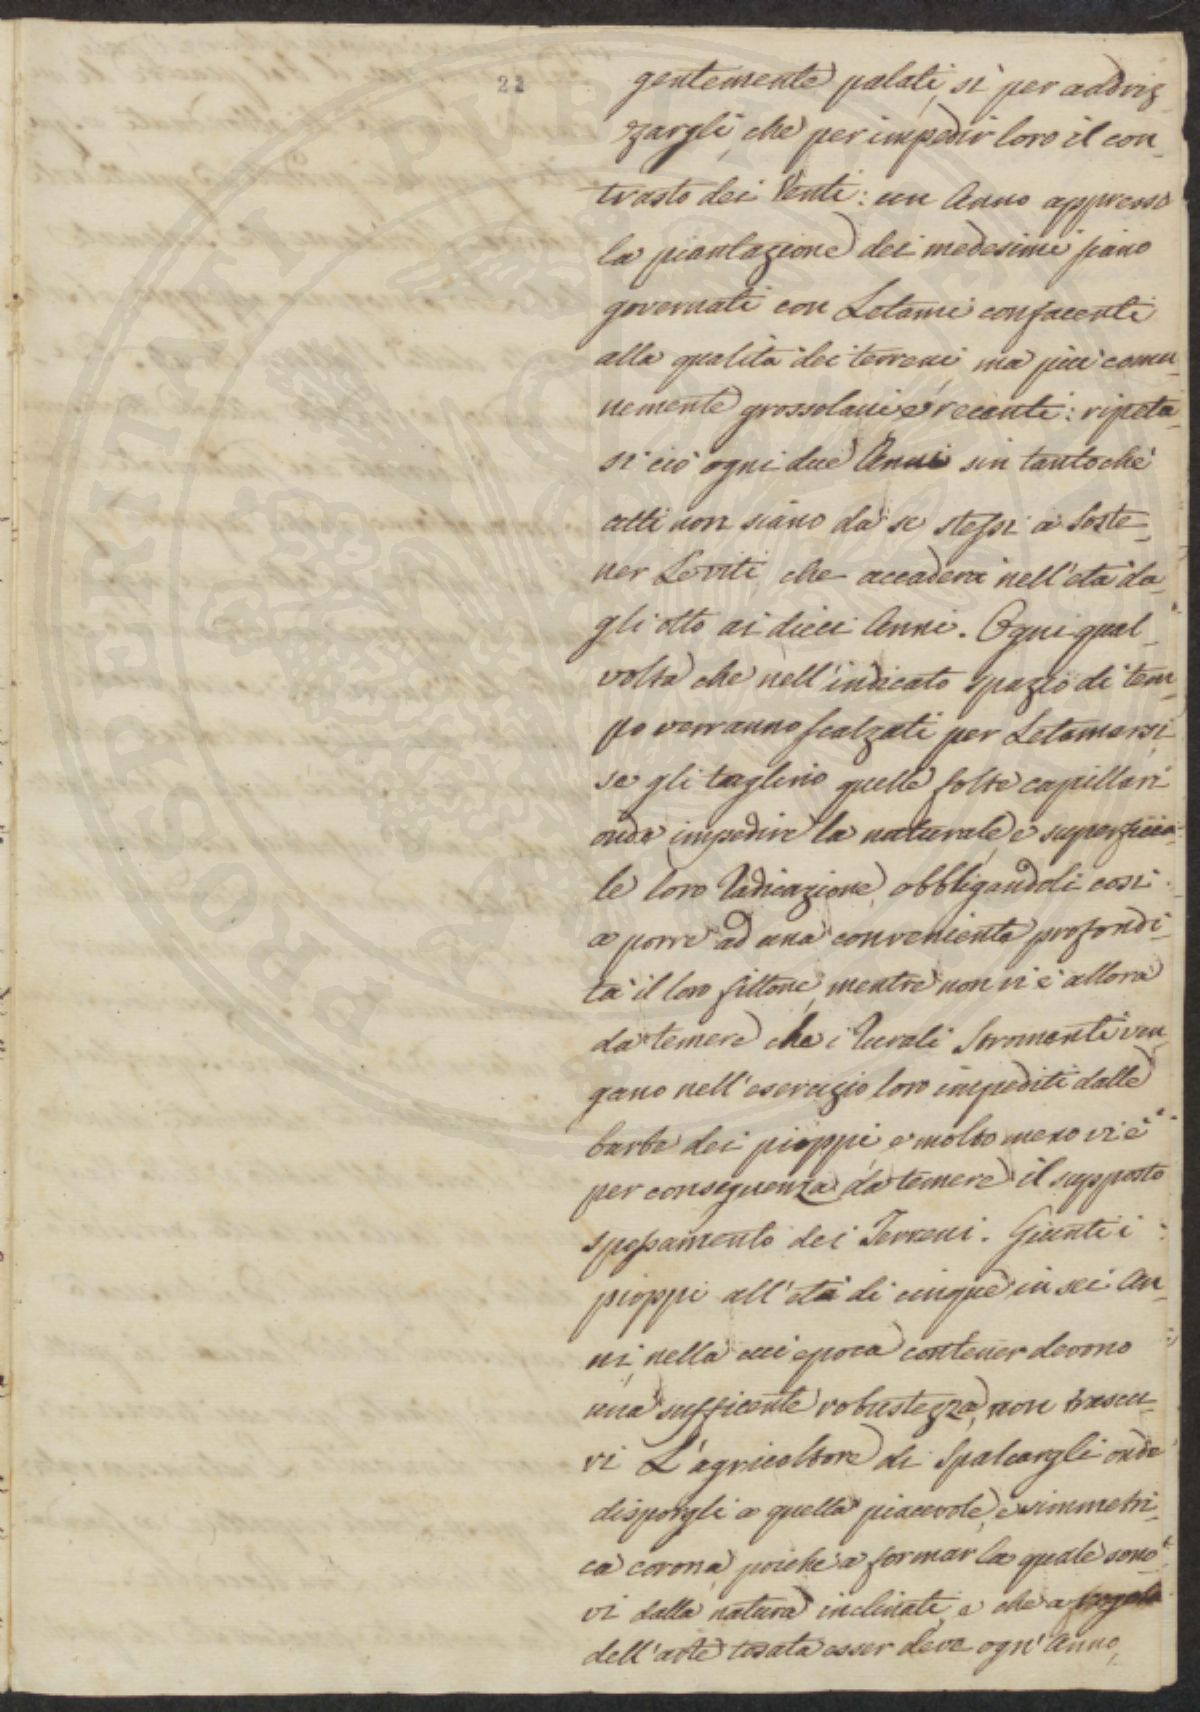 22
gentemente palati, si per addriz-
zargli, che per impedir loro il con-
trasto dei Venti: un Anno appresso
la piantazione dei medesimi siano
governati con Letami confacenti
alla qualità dei terreni ma più comu-
nemente grossolani e recenti: ripeta-
si ciò ogni due Anni sin tantoché
atti non siano da se stessi a soste-
ner Le viti, che accaderà nell'età da-
gli otto ai dieci Anni. Ogni qual-
volta che nell'indicato spazio di tem-
po verranno scalzati per Letamarsi
se gli taglino quelle folte capillari
onde impedire la naturale, e superficia-
le loro Radicazione, obbligandoli così
a porre ad una conveniente profondi-
tà il loro fittone, mentre non vi è allora
da temere che i Rurali Stromenti ven-
gano nell'esercizio loro impediti dalle
barbe dei pioppi, e molto meno vi è
per conseguenza da temere il supposto
spossamento dei Terreni. Giunti i
pioppi all'età di cinque in sei An-
ni, nella cui epoca contener devono
una sufficente robustezza, non trascu-
ri L'agricoltore di Spalcargli onde
disporgli a quella piacevole, e simmetri-
ca corona, poiché a formar la quale sono-
vi dalla natura inclinati, e che a
dell'arte tosata esser deve ogn'Anno,
PROSPERITATI PUBLICAE